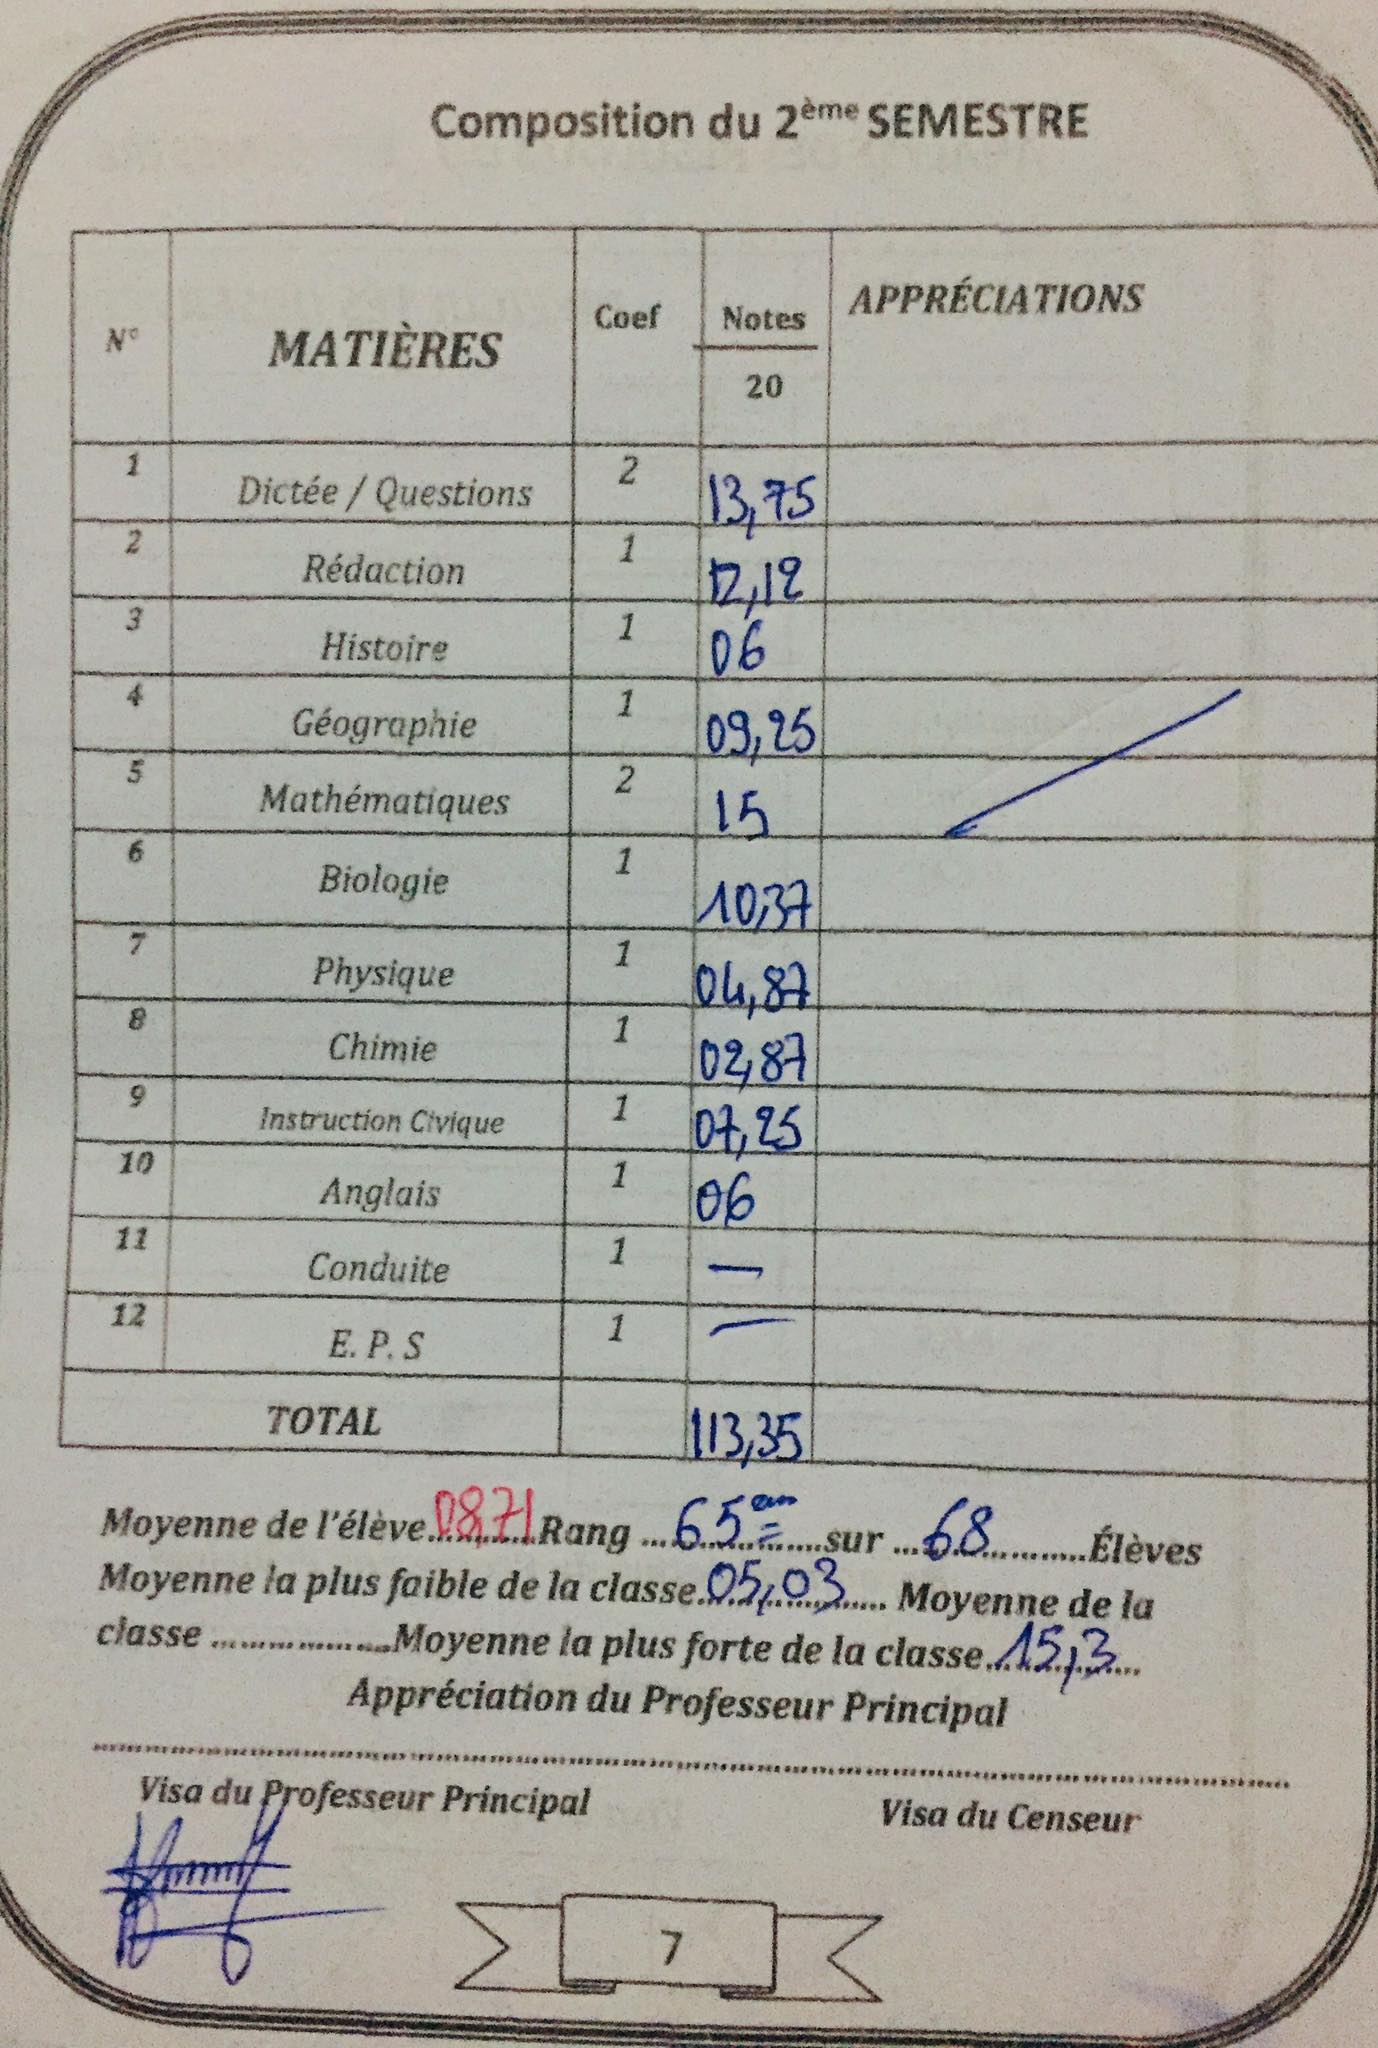 Composition du 2ème SEMESTRE
N° MATIÈRES Coef Notes 20 APPRÉCIATIONS
1 Dictée / Questions 2 13,75
2 Rédaction 1 12,12
3 Histoire 1 06
4 Géographie 1 09,25
5 Mathématiques 2 15
6 Biologie 1 10,37
7 Physique 1 04,87
8 Chimie 1 02,87
9 Instruction Civique 1 07,25
10 Anglais 1 06
11 Conduite 1 —
12 E. P. S 1 —
TOTAL 113,35
Moyenne de l'élève 08,71 Rang 65em sur 68 Élèves
Moyenne la plus faible de la classe 05,03 Moyenne de la
classe .................. Moyenne la plus forte de la classe 15,3
Appréciation du Professeur Principal
Visa du Professeur Principal Visa du Censeur
7